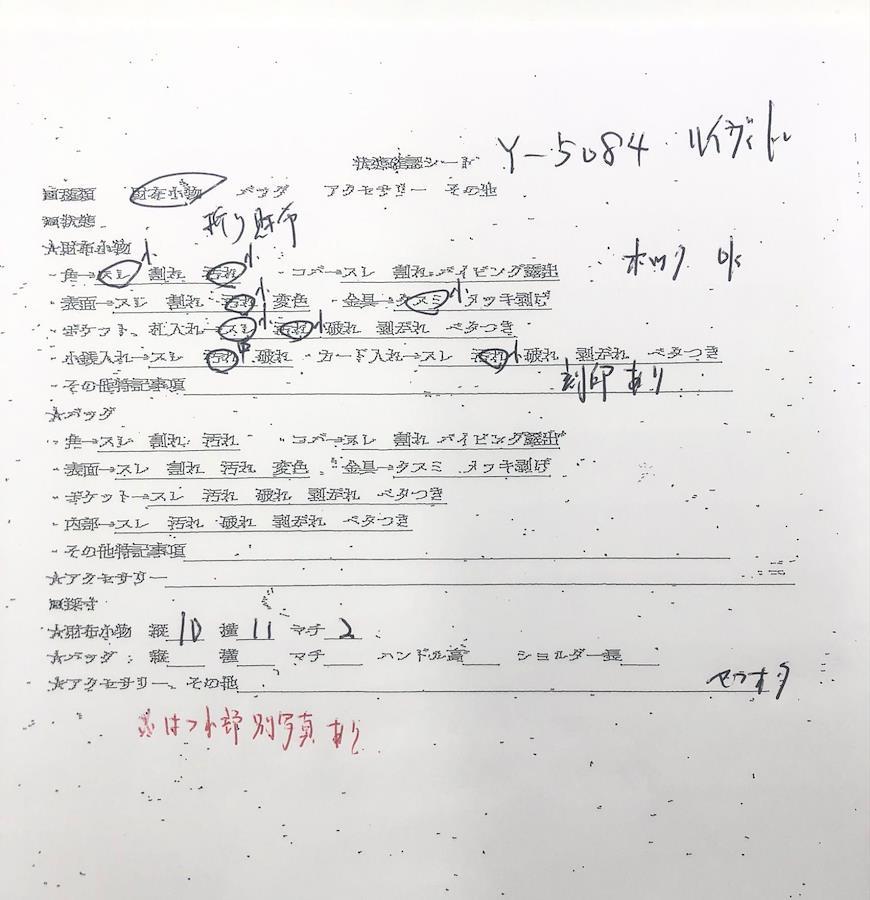 状態確認シート Y-5084 ルイヴィトン
■種類 財布小物 バッグ アクセサリー その他
■状態 折り財布
★財布小物
・角→スレ小 割れ 汚れ小 ・コバ→スレ 割れ パイピング露出 ホック ok
・表面→スレ 割れ 汚れ小 変色 ・金具→クスミ小 メッキ剥げ
・ポケット、札入れ→スレ小 汚れ小 破れ 剥がれ ベタつき
・小銭入れ→スレ 汚れ中 破れ ・カード入れ→スレ 汚れ小 破れ 剥がれ ベタつき
・その他特記事項 刻印あり
★バッグ
・角→スレ 割れ 汚れ ・コバ→スレ 割れ パイピング露出
・表面→スレ 割れ 汚れ 変色 ・金具→クスミ メッキ剥げ
・ポケット→スレ 汚れ 破れ 剥がれ ベタつき
・内部→スレ 汚れ 破れ 剥がれ ベタつき
・その他特記事項
★アクセサリー
■採寸
★財布小物 縦10 横11 マチ2
★バッグ：縦 横 マチ ハンドル高 ショルダー長
★アクセサリー、その他
別写真あり